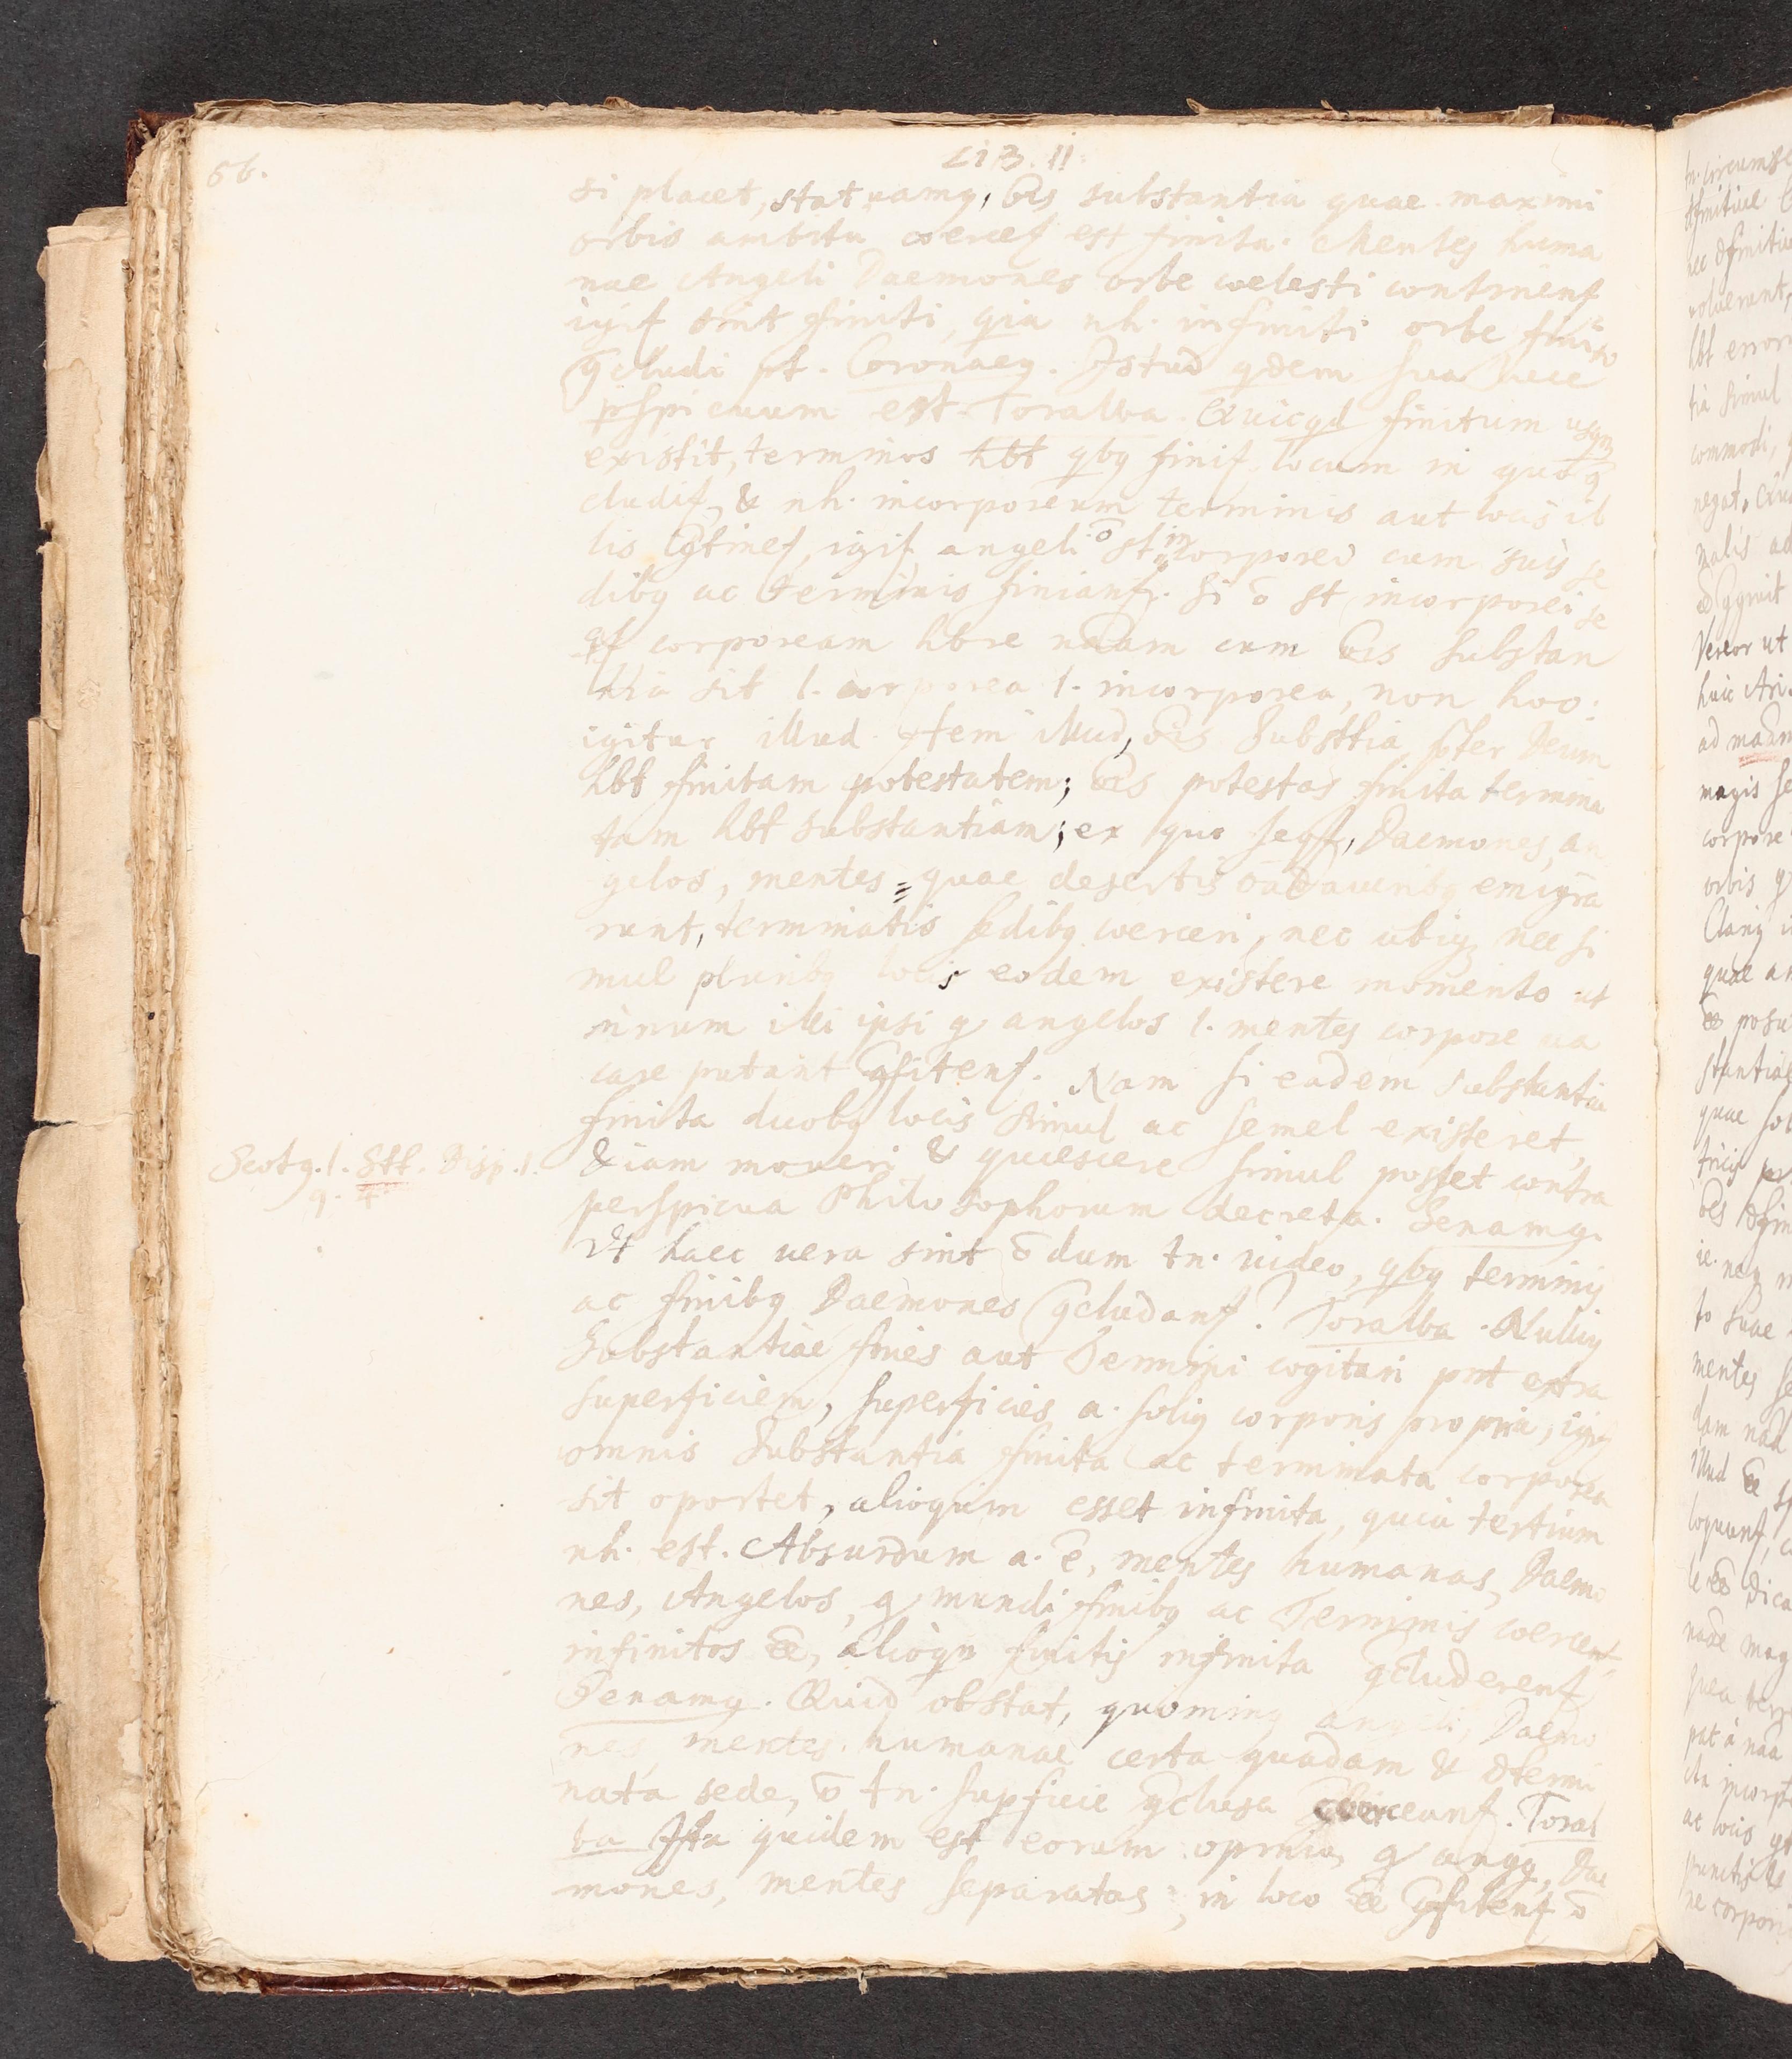 56.
LIB. II.
si placet, statuamq, ois substantia quae maximi
orbis ambitu coercet est finita. Mentes huma
nae Angeli Daemones orbe coelesti continent
igit sint finiti, qia nh. infiniti orbe finito
qcludi pt. Coronaeq. Istud qdem sua luce
pspicuum est. Toralba. Quicqd finitum usqm
existit, terminos hbt qbq finit, locum in quo q
cludit, & nh. incorporeum terminis aut locis il
lis qtinet, igit angeli ō st incorporei cum suis se
dibq ac terminis finiant. Si ō st incorporei se
qt corpoream hbre naam cum ois substan
tia sit l. corporea l. incorporea, non hoc:
igitur illud. Item illud, ois Substtia pter Deum
hbt finitam potestatem; ois potestas finita termina
tam hbt substantiam; ex quo seqt, Daemones, an
gelos, mentes = quae desertis cadaueribq emigra
runt, terminatis sedibq coerceri, nec ubiq nec si
mul pluribq locis eodem existere momento ut
illi ipsi q angelos l. mentes corpore ua
care putant qfitent. Nam si eadem substantia
finita duobq locis simul ac semel existeret,
&iam moueri & quiescere simul posset contra
perspicua Philosophorum decreta. Senamq.
Ut haec uera sint ō dum tn. uideo, qbq terminis
ac finibq Daemones qcludant? Toralba. Nulliq
Substantiae fines aut Termini cogitari pnt extra
superficiem, superficies a. soliq corporis propria, igit
omnis Substantia finita ac terminata corporea
sit oportet, alioquin esset infinita, quia tertium
nh. est. Absurdum a. ē, mentes humanas, Daemo
nes, Angelos, q mundi finibq ac Terminis coercent
infinitos ēe, alioqn finitis infinita qcluderent
Senamq. Quid obstat, quominq angeli, Daemo
nes, mentes humanae certa quadam & dtermi
nata sede, ō tn. supficie qclusa coerceant. Toral
ba Ista quidem est eorum opinio, q angq, Dae
mones, mentes separatas, in loco ēe qfitent ō
Scotq. l. Stt. Disp. 1.
q. 4.